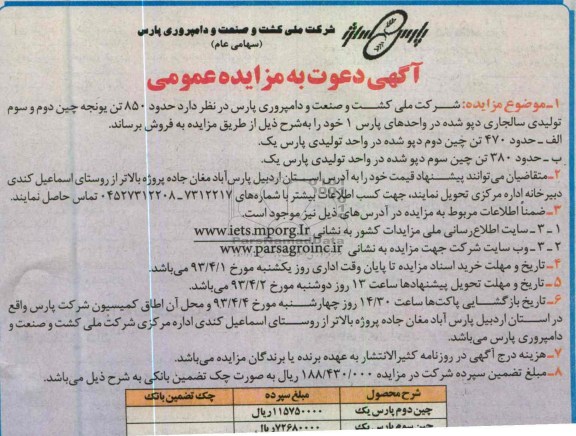 شرکت ملی کشت و صنعت و دامپروری پارس
(سهامی عام)
آگهی دعوت به مزایده عمومی
۱ـ موضوع مزایده: شرکت ملی کشت و صنعت و دامپروری پارس در نظر دارد حدود ۸۵۰ تن یونجه چین دوم و سوم
تولیدی سالجاری دپو شده در واحدهای پارس ۱ خود را به‌شرح ذیل از طریق مزایده به فروش برساند.
الف ـ حدود ۴۷۰ تن چین دوم دپو شده در واحد تولیدی پارس یک.
ب ـ حدود ۳۸۰ تن چین سوم دپو شده در واحد تولیدی پارس یک.
۲ـ متقاضیان می‌توانند پیشنهاد قیمت خود را به آدرس استان اردبیل پارس‌آباد مغان جاده پروژه بالاتر از روستای اسماعیل کندی
دبیرخانه اداره مرکزی تحویل نمایند، جهت کسب اطلاعات بیشتر با شماره‌های ۷۳۱۲۲۱۷ ـ ۰۴۵۲۷۳۱۲۲۰۸ تماس حاصل نمایند.
۳ـ ضمناً اطلاعات مربوط به مزایده در آدرس‌های ذیل نیز موجود است.
۱ـ۳ـ سایت اطلاع‌رسانی ملی مزایدات کشور به نشانی www.iets.mporg.Ir
۲ـ۳ـ وب سایت شرکت جهت مزایده به نشانی www.parsagroinc.ir
۴ـ تاریخ و مهلت خرید اسناد مزایده تا پایان وقت اداری روز یکشنبه مورخ ۹۳/۴/۱ می‌باشد.
۵ـ تاریخ و مهلت تحویل پیشنهادها ساعت ۱۳ روز دوشنبه مورخ ۹۳/۴/۲ می‌باشد.
۶ـ تاریخ بازگشایی پاکت‌ها ساعت ۱۴/۳۰ روز چهارشنبه مورخ ۹۳/۴/۴ و محل آن اطاق کمیسیون شرکت پارس واقع
در استان اردبیل پارس آباد مغان جاده پروژه بالاتر از روستای اسماعیل کندی اداره مرکزی شرکت ملی کشت و صنعت و
دامپروری پارس می‌باشد.
۷ـ هزینه درج آگهی در روزنامه کثیرالانتشار به عهده برنده یا برندگان مزایده می‌باشد.
۸ـ مبلغ تضمین سپرده شرکت در مزایده ۱۸۸/۴۳۰/۰۰۰ ریال به صورت چک تضمین بانکی به شرح ذیل می‌باشد.
شرح محصول مبلغ سپرده چک تضمین بانک
چین دوم پارس یک ۱۱۵۷۵۰۰۰۰ریال
چین سوم پارس یک ۷۲۶۸۰۰۰۰ریال